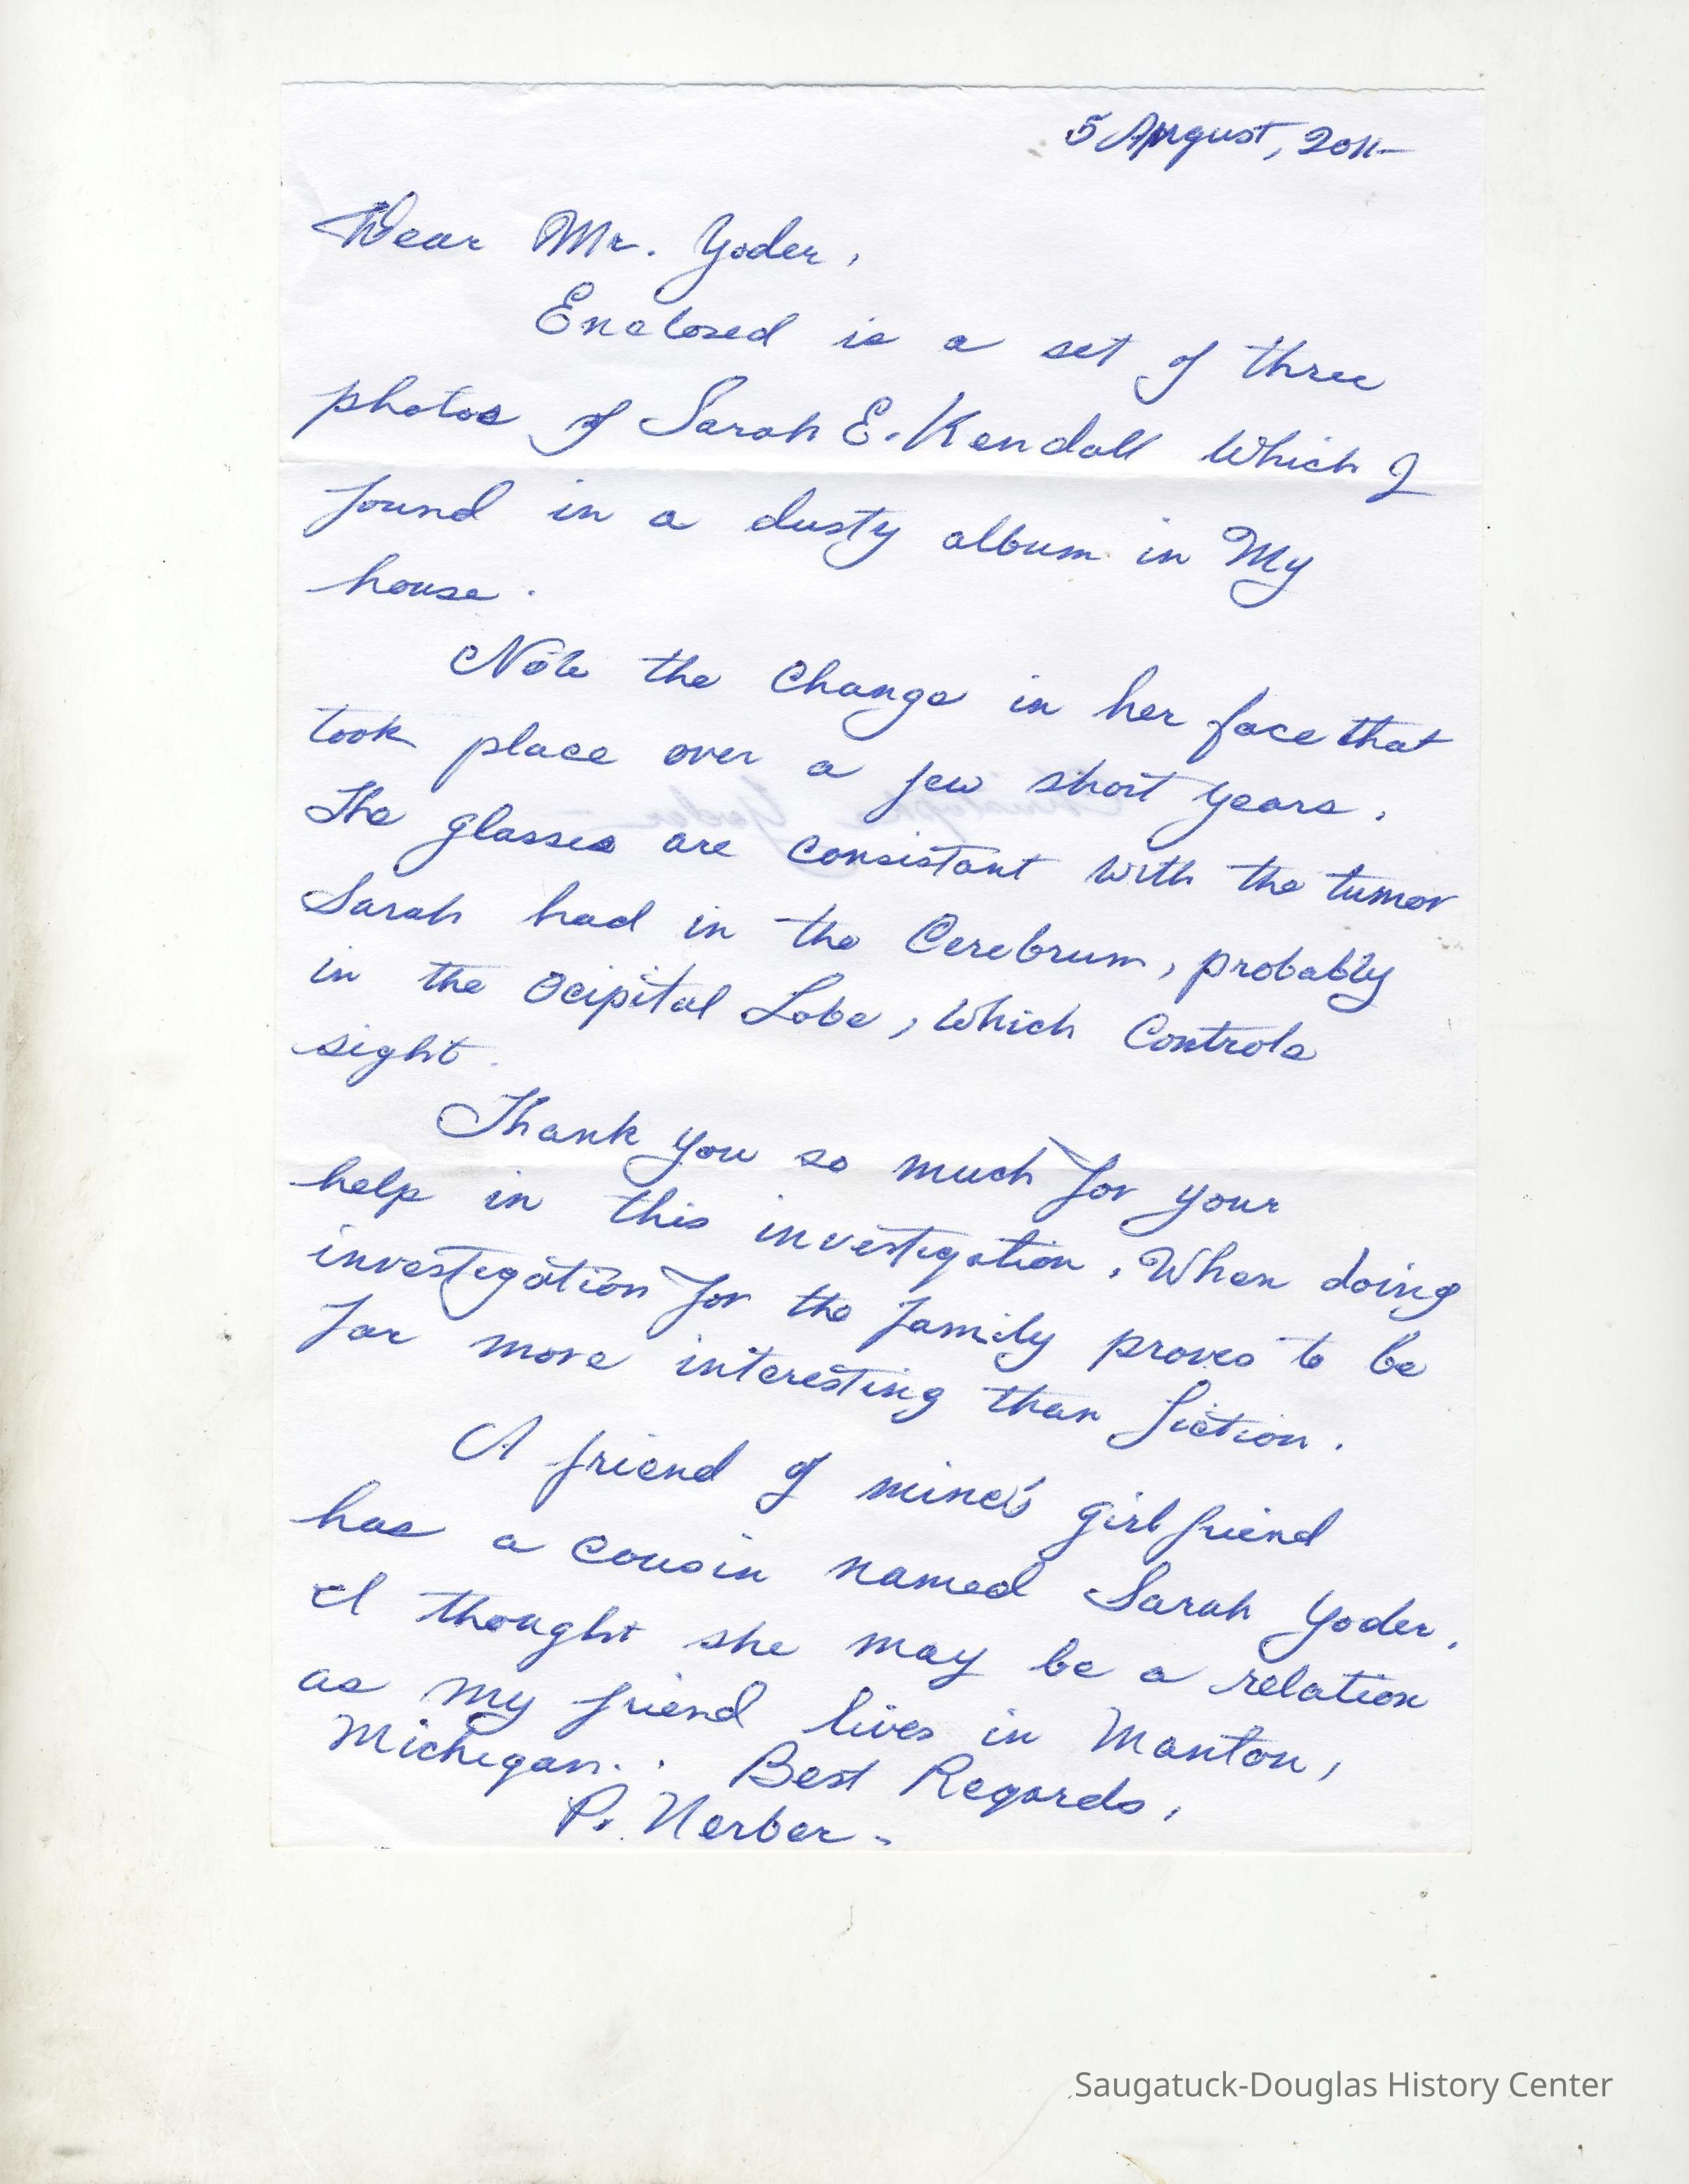 5 August, 2011
Dear Mr. Yoder,
Enclosed is a set of three
photos of Sarah E. Kendall which I
found in a dusty album in My
house.
Note the change in her face that
took place over a few short years.
The glasses are consistant with the tumor
Sarah had in the Cerebrum, probably
in the Ocipital Lobe, which Controls
sight.
Thank you so much for your
help in this investigation. When doing
investigation for the family proves to be
far more interesting than fiction.
A friend of mine's girlfriend
has a cousin named Sarah Yoder.
I thought she may be a relation
as my friend lives in Manton,
Michigan. Best Regards,
P. Nerber
Saugatuck-Douglas History Center